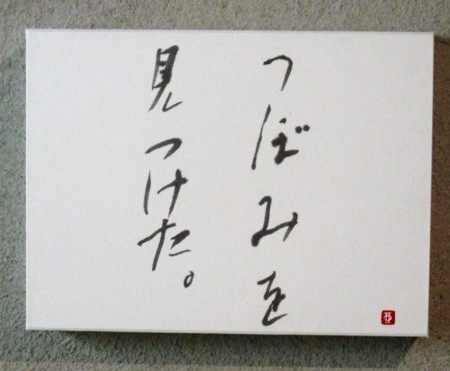 つぼみを
見つけた。